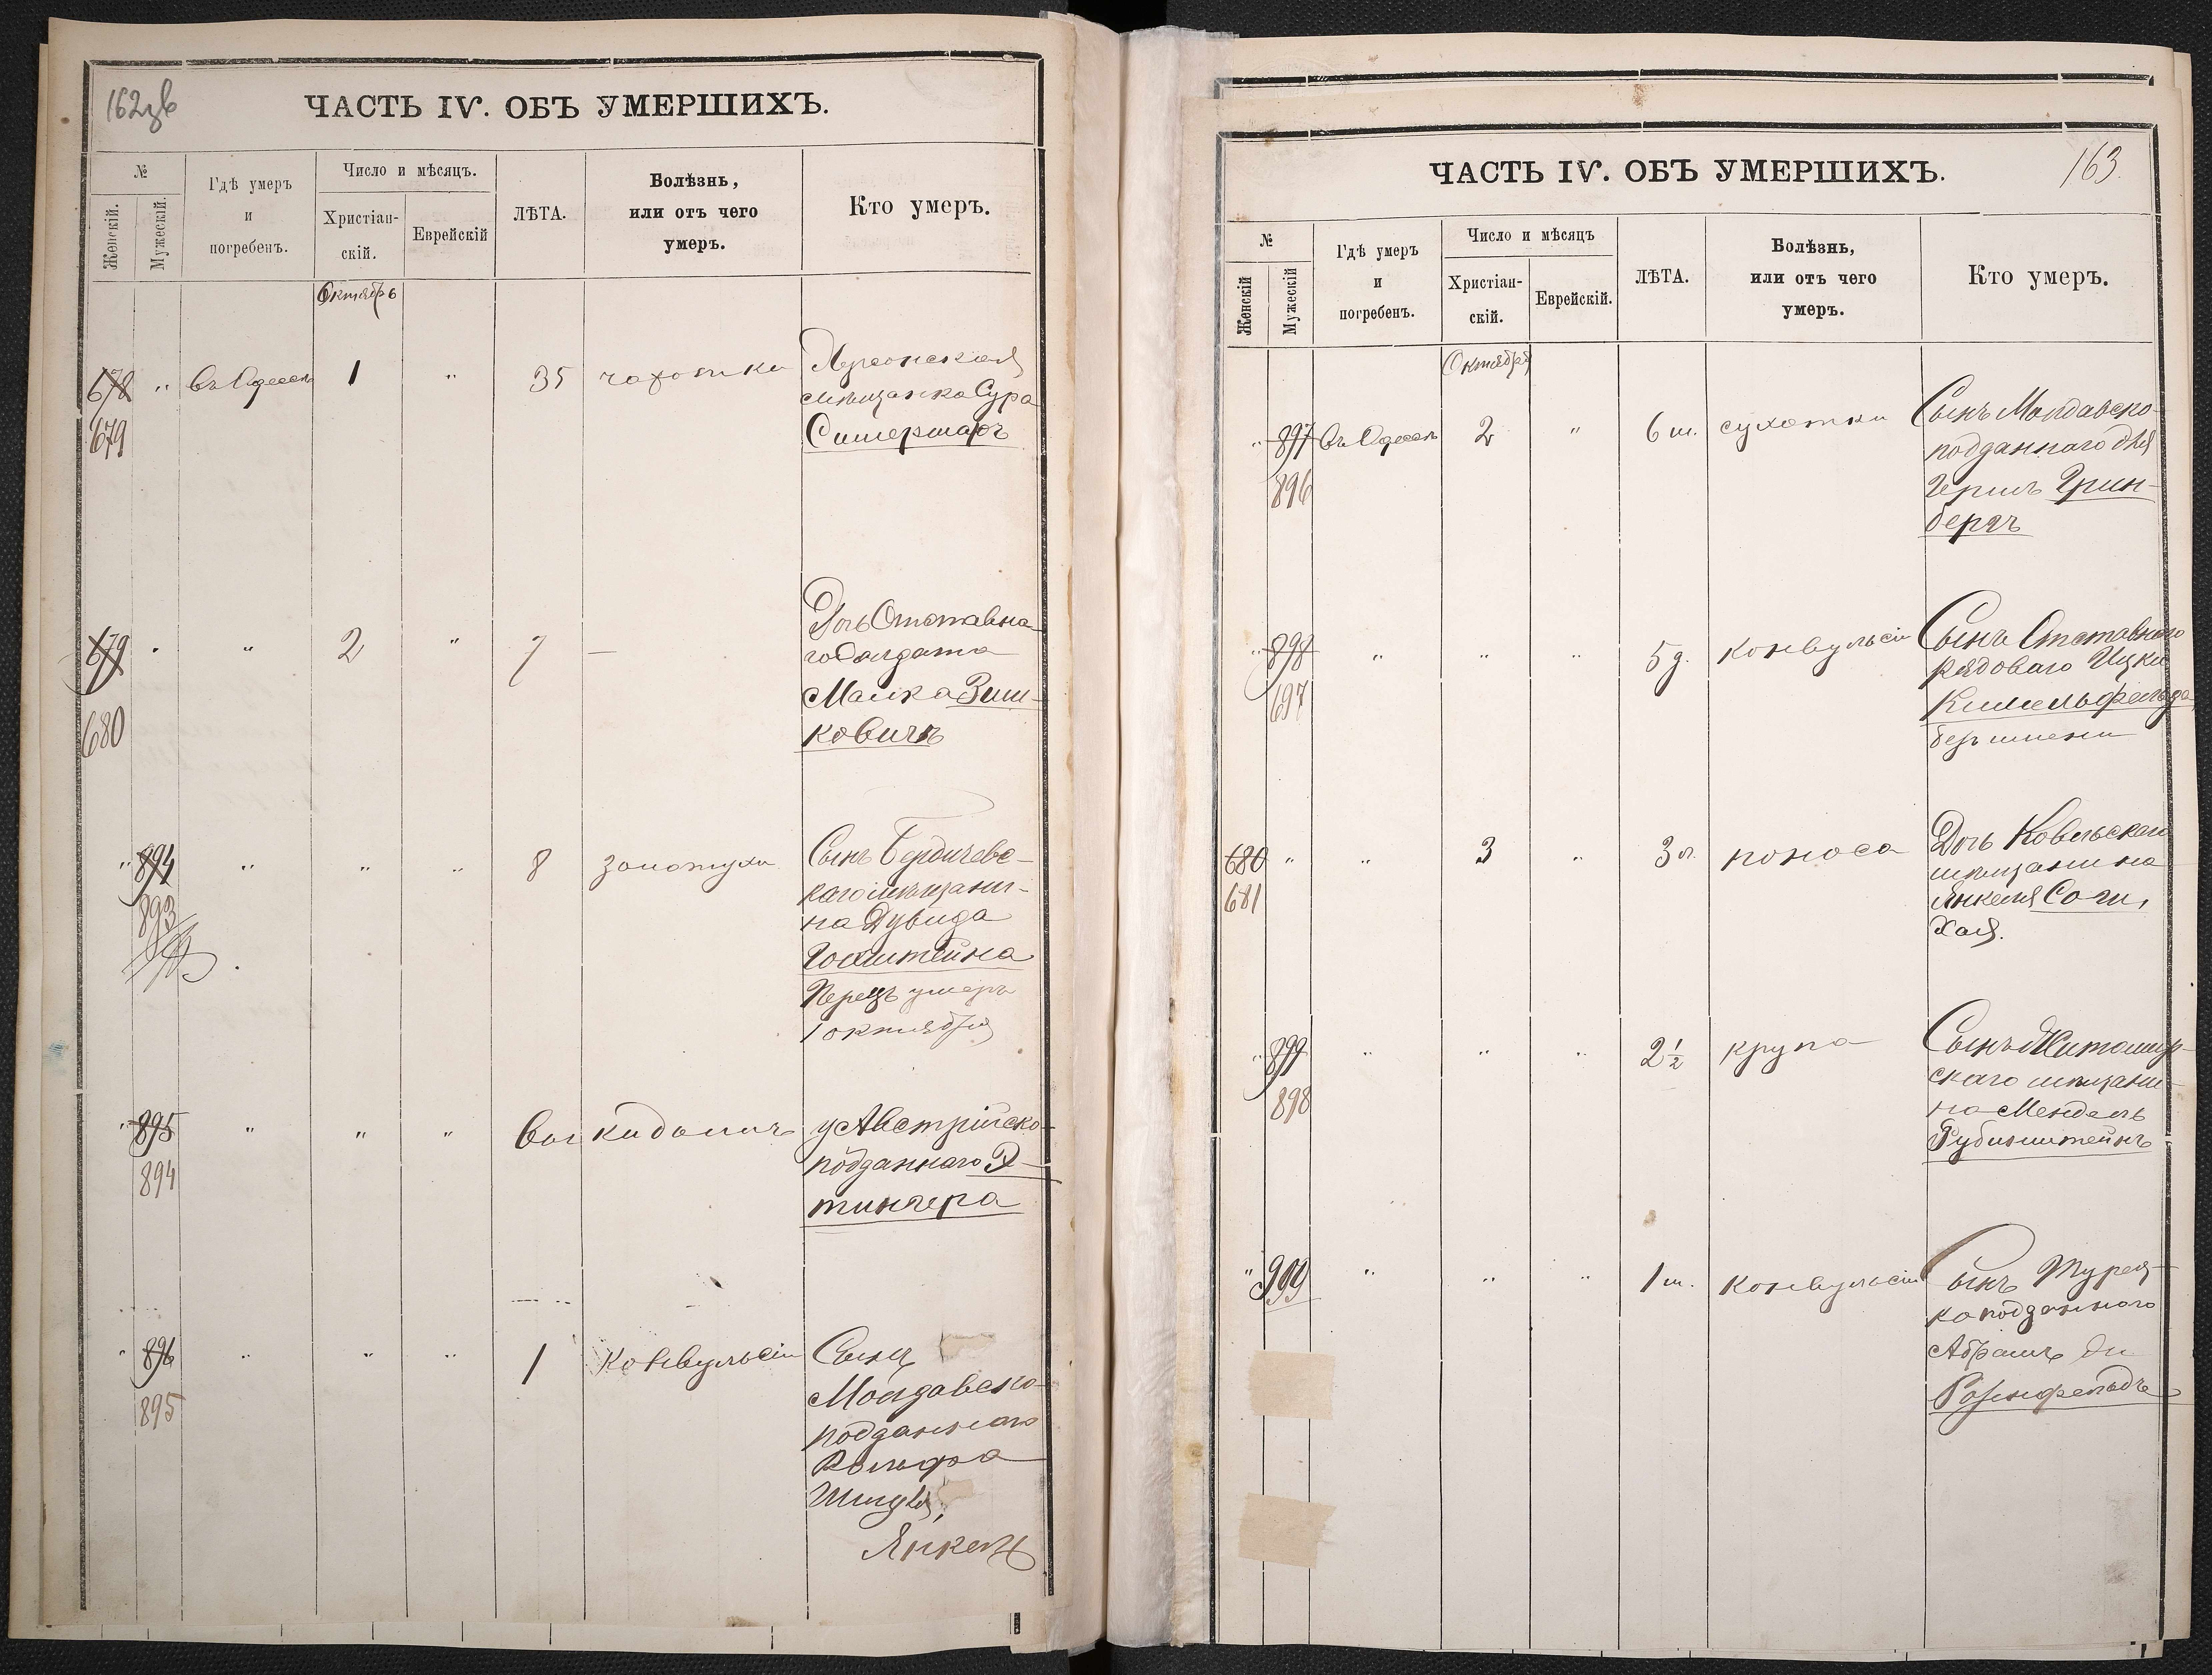 162об
ЧАСТЬ IV. ОБЪ УМЕРШИХЪ.
№
Женскій.
Мужескій.
Гдѣ умеръ
и
погребенъ.
Число и мѣсяцъ.
Христіан-
скій.
Еврейскій
ЛѢТА.
Болѣзнь,
или отъ чего
умеръ.
Кто умеръ.
Октябрь
678 " въ Одессѣ 1 " 35 чахотки Херсонская
679
мѣщанка Сура
679 " " 2 " 7 — Дочь Отставна
680
го Солдата
Малка Зиль-
ковичъ
" 894 " " " 8 золотухи Сынъ Бердичевс-
893
каго мѣщани-
на Дувида
Гольштейна
Перецъ умеръ
1 октября
" 895 " " " выкидышъ у Австрійско-
894
подданнаго Э-
тингера
" 896 " " " 1 конвульсіи Сынъ
895
Молдавско-
подданнаго
Вольфа
Янкель
ЧАСТЬ IV. ОБЪ УМЕРШИХЪ.
163.
№
Женскій
Мужескій
Гдѣ умеръ
и
погребенъ.
Число и мѣсяцъ
Христіан-
скій.
Еврейскій.
ЛѢТА.
Болѣзнь,
или отъ чего
умеръ.
Кто умеръ.
Октября
" 897 въ Одессѣ 2 " 6 м. сухотки Сынъ Молдавско-
896
подданнаго
Гершъ Грин-
бергъ
" 898 " " " 5 д. конвульсіи Сынъ Отставнаго
697
рядоваго Ицки
Кимельфельда
безъ имени
680 " " 3 " 3 г. поноса Дочь Ковельскаго
681
мѣщанина
Янкеля
Хая.
" 899 " " " 2 1/2 крупа Сынъ Житомир-
898
скаго мѣщани-
на Мендель
Рубинштейнъ
" 899 " " " 1 м. конвульсіи Сынъ Турец-
коподданнаго
Абрамъ
Розенфельдъ